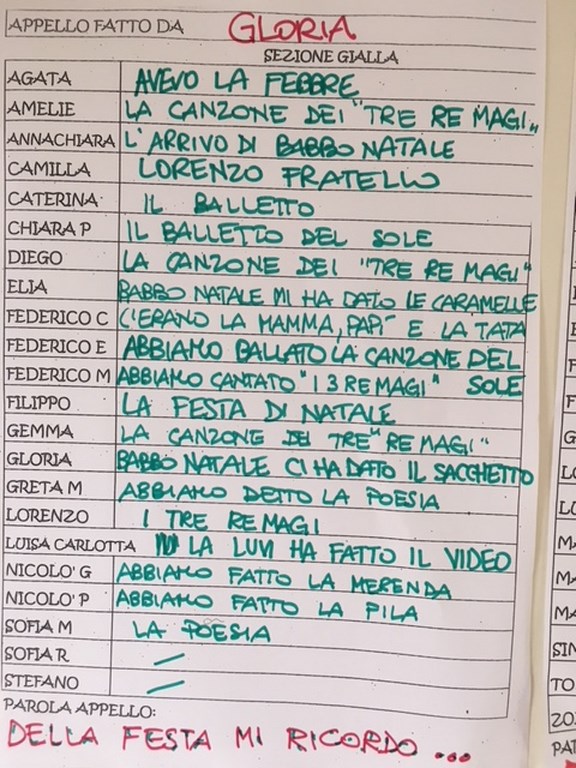 APPELLO FATTO DA GLORIA
SEZIONE GIALLA
AGATA AVEVO LA FEBBRE
AMELIE LA CANZONE DEI "TRE RE MAGI"
ANNACHIARA L'ARRIVO DI BABBO NATALE
CAMILLA LORENZO FRATELLO
CATERINA IL BALLETTO
CHIARA P IL BALLETTO DEL SOLE
DIEGO LA CANZONE DEI "TRE RE MAGI"
ELIA BABBO NATALE MI HA DATO LE CARAMELLE
FEDERICO C C'ERANO LA MAMMA, PAPI E LA TATA
FEDERICO E ABBIAMO BALLATO LA CANZONE DEL
FEDERICO M ABBIAMO CANTATO "I 3 RE MAGI" SOLE
FILIPPO LA FESTA DI NATALE
GEMMA LA CANZONE DEI TRE "RE MAGI"
GLORIA BABBO NATALE CI HA DATO IL SACCHETTO
GRETA M ABBIAMO DETTO LA POESIA
LORENZO I TRE RE MAGI
LUISA CARLOTTA LA LUVI HA FATTO IL VIDEO
NICOLO' G ABBIAMO FATTO LA MERENDA
NICOLO' P ABBIAMO FATTO LA PILA
SOFIA M LA POESIA
SOFIA R /
STEFANO /
PAROLA APPELLO:
DELLA FESTA MI RICORDO ...